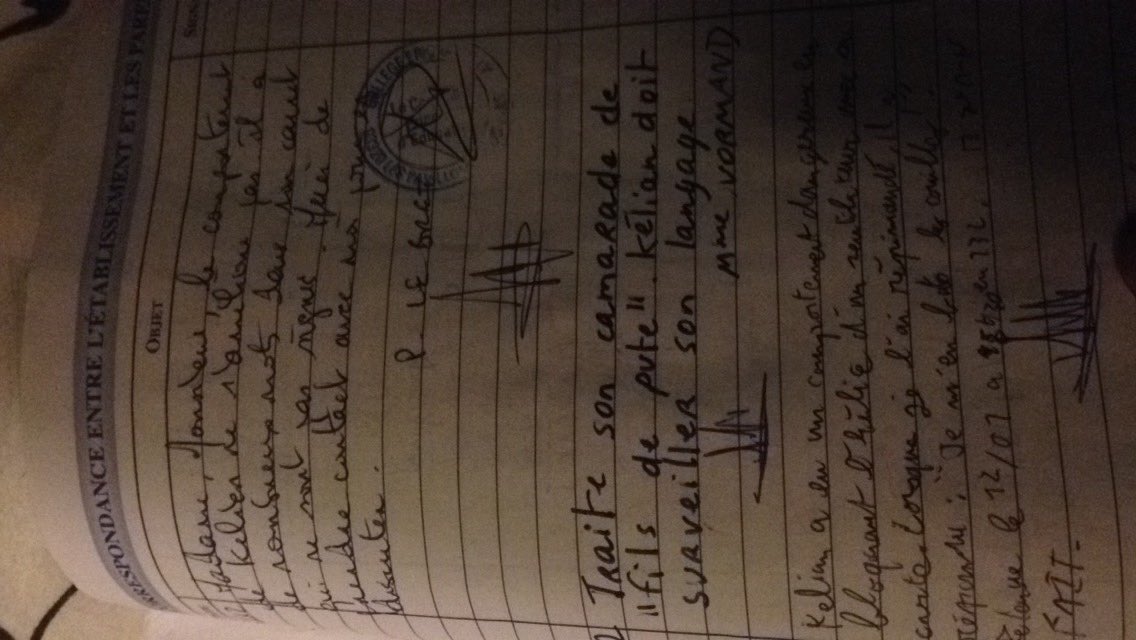 CORRESPONDANCE ENTRE L'ÉTABLISSEMENT ET LES PARE
OBJET
Madame, Monsieur, le comportement
de Kelian ne s'améliore pas il a
de nombreux mots dans son carnet
qui ne sont pas signés. Merci de
prendre contact avec moi pour
discuter.
P. LE
Traite son camarade de
"fils de pute". Kélian doit
surveiller son langage
Mme NORMAND
Kelian a eu un comportement dangereux en
bloquant l'hélice d'un
lorsque je l'ai réprimandé, il a
répondu : "Je m'en bats les couilles"
le 12/01 à en